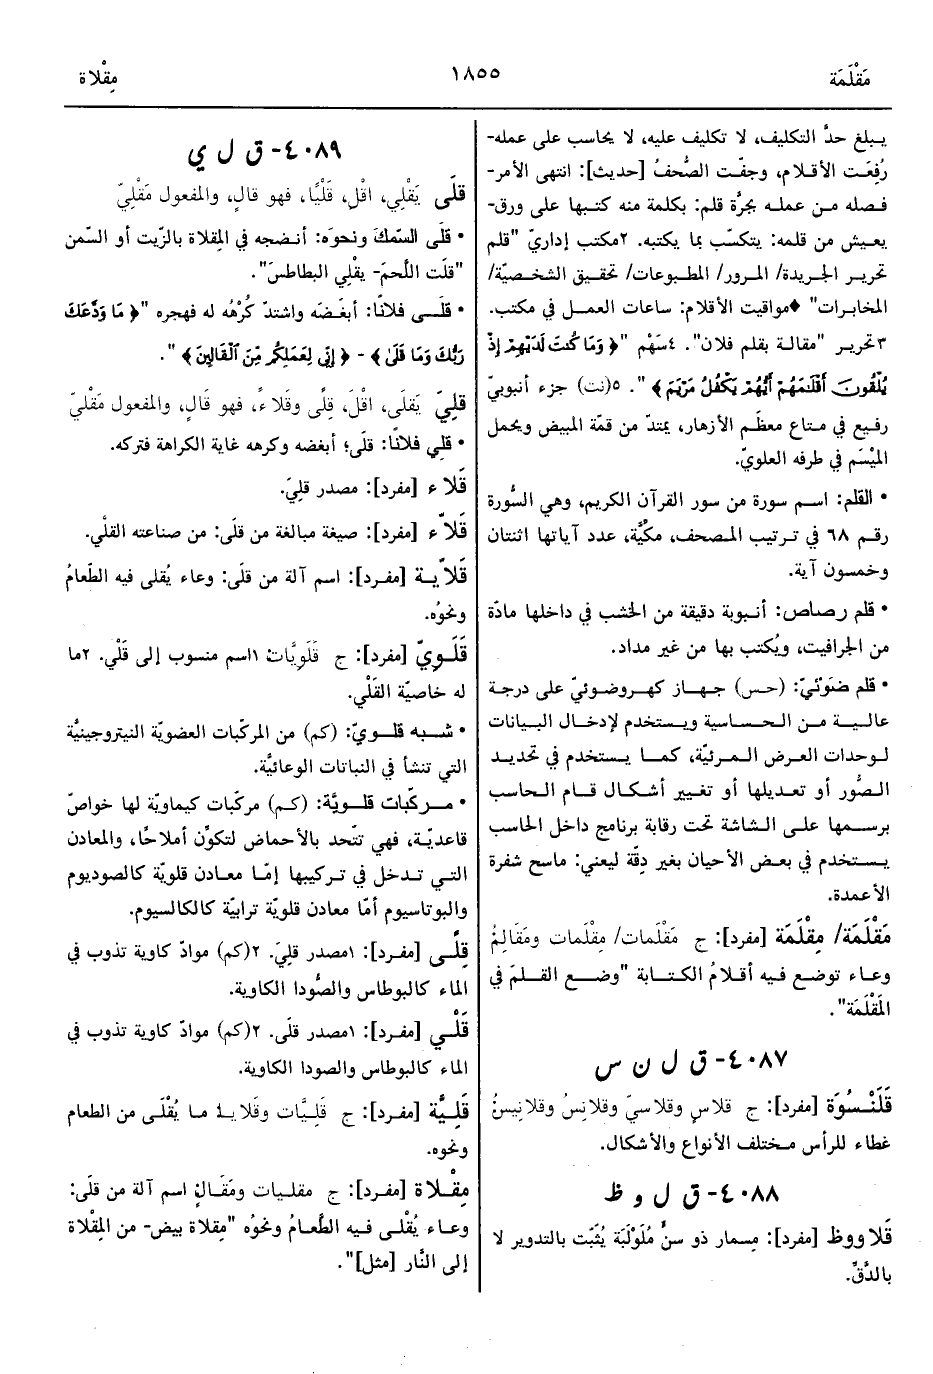 مَقْلَمَة
١٨٥٥
مِقْلاة
يـبلغ حدَّ التكليف، لا تكليف عليه، لا يحاسب على عمله-
رُفِعَت الأقـلام، وجفّت الصُّحفُ [حديث]: انتهى الأمر-
فـصله مـن عملـه بجرَّة قلم: بكلمة منه كتبها على ورق-
يعـيش من قلمه: يتكسّب بما يكتبه. ٢مكتب إداريّ "قلم
تحرير الجريدة/ المرور/ المطبوعات/ تحقيق الشخصيّة/
المخابرات" ♦مواقيت الأقلام: ساعات العمـل في مكتب.
٣تحرير "مقالـة بقلم فلان". ٤سَهْم "﴿ وَمَا كُنتَ لَدَيْهِمْ إِذْ
يُلْقُونَ أَقْلَـٰمَهُمْ أَيُّهُمْ يَكْفُلُ مَرْيَمَ ﴾". ٥(نت) جزء أنبوبيّ
رفـيع في متـاع معظَـم الأزهـار، يمتدّ من قمّة المبيض ويحمل
الِميْسَم في طرفه العلويّ.
• القلم: اسـم سورة من سور القرآن الكريم، وهي السُّورة
رقـم ٦٨ في ترتيب المـصحف، مكّيَّة، عدد آياتها اثنتان
وخمسون آية.
• قلم رصاص: أنـبوبة دقيقة من الخشب في داخلها مادّة
من الجرافيت، ويُكتب بها من غير مداد.
• قلم ضَوْئيّ: (حـس) جهـاز كهـروضـوئيّ على درجـة
عالـية مـن الحـساسية ويـستخدم لإدخـال البـيانات
لـوحدات العـرض المـرئيّة، كمـا يـستخدم في تحديـد
الـصُّور أو تعديلها أو تغيير أشكـال قـام الحـاسب
برسـمها علـى الـشاشة تحت رقابة برنامج داخل الحاسب
يـستخدم في بعـض الأحيان بغير دِقّة ليعني: ماسح شفرة
الأعمدة.
مَقْلَمَة/ مِقْلَمَة [مفرد]: ج مَقْلَمات/ مِقْلَمات ومَقَالِمُ
وعـاء توضـع فـيه أقـلامُ الكـتابة "وضـع القلـمَ في
المَقْلَمَة".
٤٠٨٧- ق ل ن س
قَلَنْسُوَة [مفرد]: ج قلاسٍ وقلاسيّ وقلانِسُ وقلانيسُ
غطاء للرأس مختلف الأنواع والأشكال.
٤٠٨٨- ق ل و ظ
قَلاووظ [مفرد]: مِسمار ذو سنٍّ مُلَوْلَبَة يُثَبَّت بالتدوير لا
بالدَّقِّ.
٤٠٨٩- ق ل ي
قلَى يَقْلِي، اقْلِ، قَلْيًا، فهو قالٍ، والمفعول مَقْلِيّ
• قلَى السّمكَ ونحوَه: أنـضجه في المِقلاة بالزّيت أو السّمن
"قلَت اللّحمَ- يقْلِي البطاطسَ".
• قلَـى فلانًا: أبغَضه واشتدّ كُرْهُه له فهجره "﴿ مَا وَدَّعَكَ
رَبُّكَ وَمَا قَلَىٰ ﴾ - ﴿ إِنِّى لِعَمَلِكُم مِّنَ ٱلْقَالِينَ ﴾".
قلِيَ يَقلَى، اقْلَ، قِلًى وقَلاءً، فهو قالٍ، والمفعول مَقْلِيّ
• قلِي فلانًـا: قلَى؛ أبغضه وكرهه غاية الكراهة فتركه.
قَلاء [مفرد]: مصدر قلِيَ.
قَلاّء [مفرد]: صيغة مبالغة من قلَى: من صناعته القلْي.
قَلاّيـة [مفـرد]: اسـم آلة من قلَى: وعاء يُقلى فيه الطّعامُ
ونحوُه.
قَلَـوِيّ [مفرد]: ج قَلَوِيَّات: ١اسم منسوب إلى قَلْي. ٢ما
له خاصيّة القَلْي.
• شـبه قلـويّ: (كم) من المركّبات العضويّة النيتروجينيَّة
التي تنشأ في النباتات الوعائيَّة.
• مـركّبات قلـويَّة: (كـم) مركّبات كيماويّة لها خواصّ
قاعديّـة، فهي تتّحد بالأحماض لتكوِّن أملاحًا، والمعادن
التـي تـدخل في تـركيبها إمّـا معـادن قلوية كالصوديوم
والبوتاسيوم أمّا معادن قلويّة ترابيّة كالكالسيوم.
قِلًـى [مفـرد]: ١مصدر قلِيَ. ٢(كم) موادّ كاوية تذوب في
الماء كالبوطاس والصُّودا الكاوية.
قَلْـي [مفرد]: ١مصدر قلَى. ٢(كم) موادّ كاوية تذوب في
الماء كالبوطاس والصودا الكاوية.
قَلِـيَّة [مفـرد]: ج قَلِـيَّات وقَلايـا: مـا يُقْلَـى من الطعام
ونحوه.
مِقْـلاة [مفرد]: ج مقلـيات ومَقَـالٍ: اسـم آلة من قلَى:
وعـاء يُقْلـى فـيه الطَّعـامُ ونحـوُه "مِقلاة بيض- من المِقْلاة
إلى النَّار [مثل]".